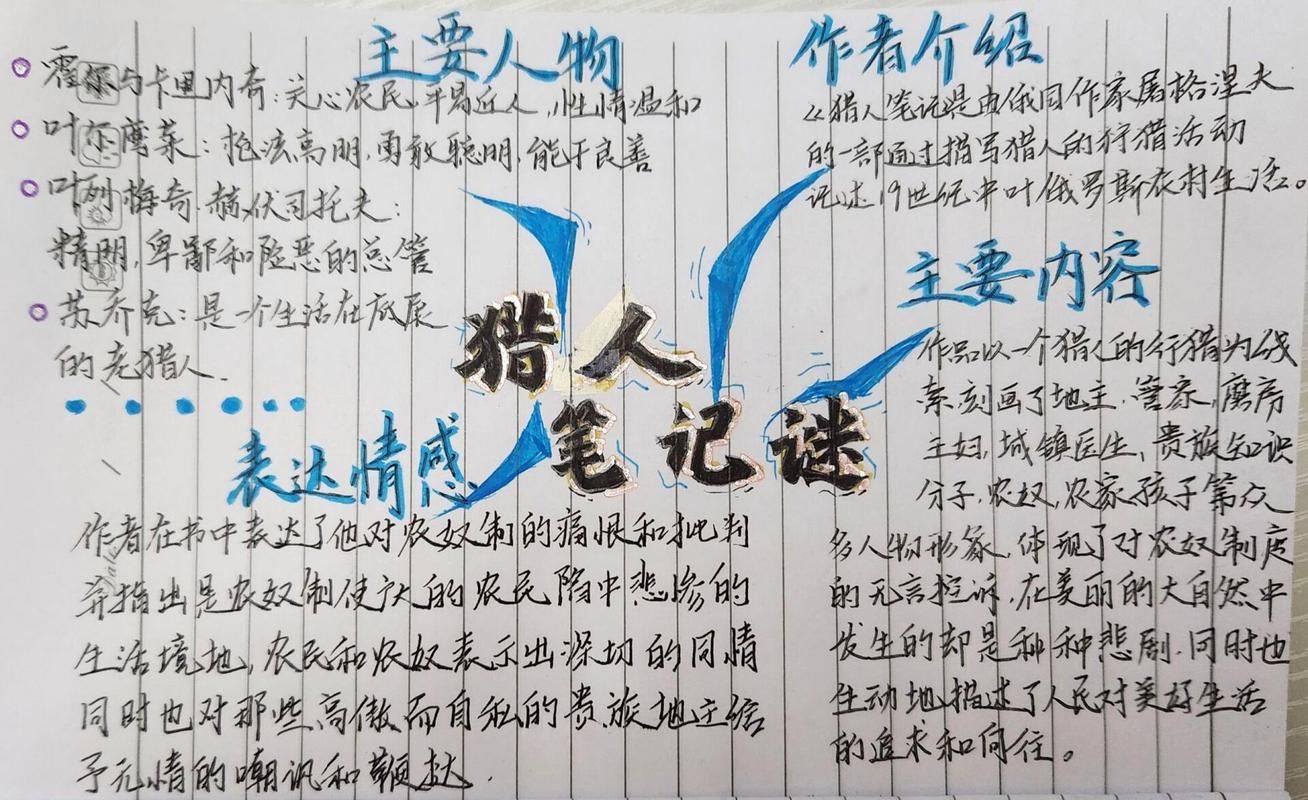 主要人物
霍尔与卡里内奇:关心农民,平易近人,性情温和
叶尔魔莱:枪法高明,勇敢聪明,能干良善
叶列梅奇,赫伏司托夫:
精明,卑鄙和险恶的总管
苏乔克:是一个生活在底层
的老猎人.
作者介绍
《猎人笔记是由俄国作家屠格涅夫
的一部通过描写猎人的狩猎活动
记述19世纪中叶俄罗斯农村生活。
主要内容
作品以一个猎人的行猎为线
索刻画了地主、管家,磨房
主妇,城镇医生,贵族知识
分子,农奴,农家孩子等众
多人物形象,体现了对农奴制度
的无言控诉,在美丽的大自然中
发生的却是种种悲剧.同时也
生动地描述了人民对美好生活
的追求和向往。
猎人
笔记谜
表达情感
作者在书中表达了他对农奴制的痛恨和批判
并指出是农奴制使广大的农民陷中悲惨的
生活境地,农民和农奴表示出深切的同情
同时也对那些高傲而自私的贵族地主给
予无情的嘲讽和鞭挞.